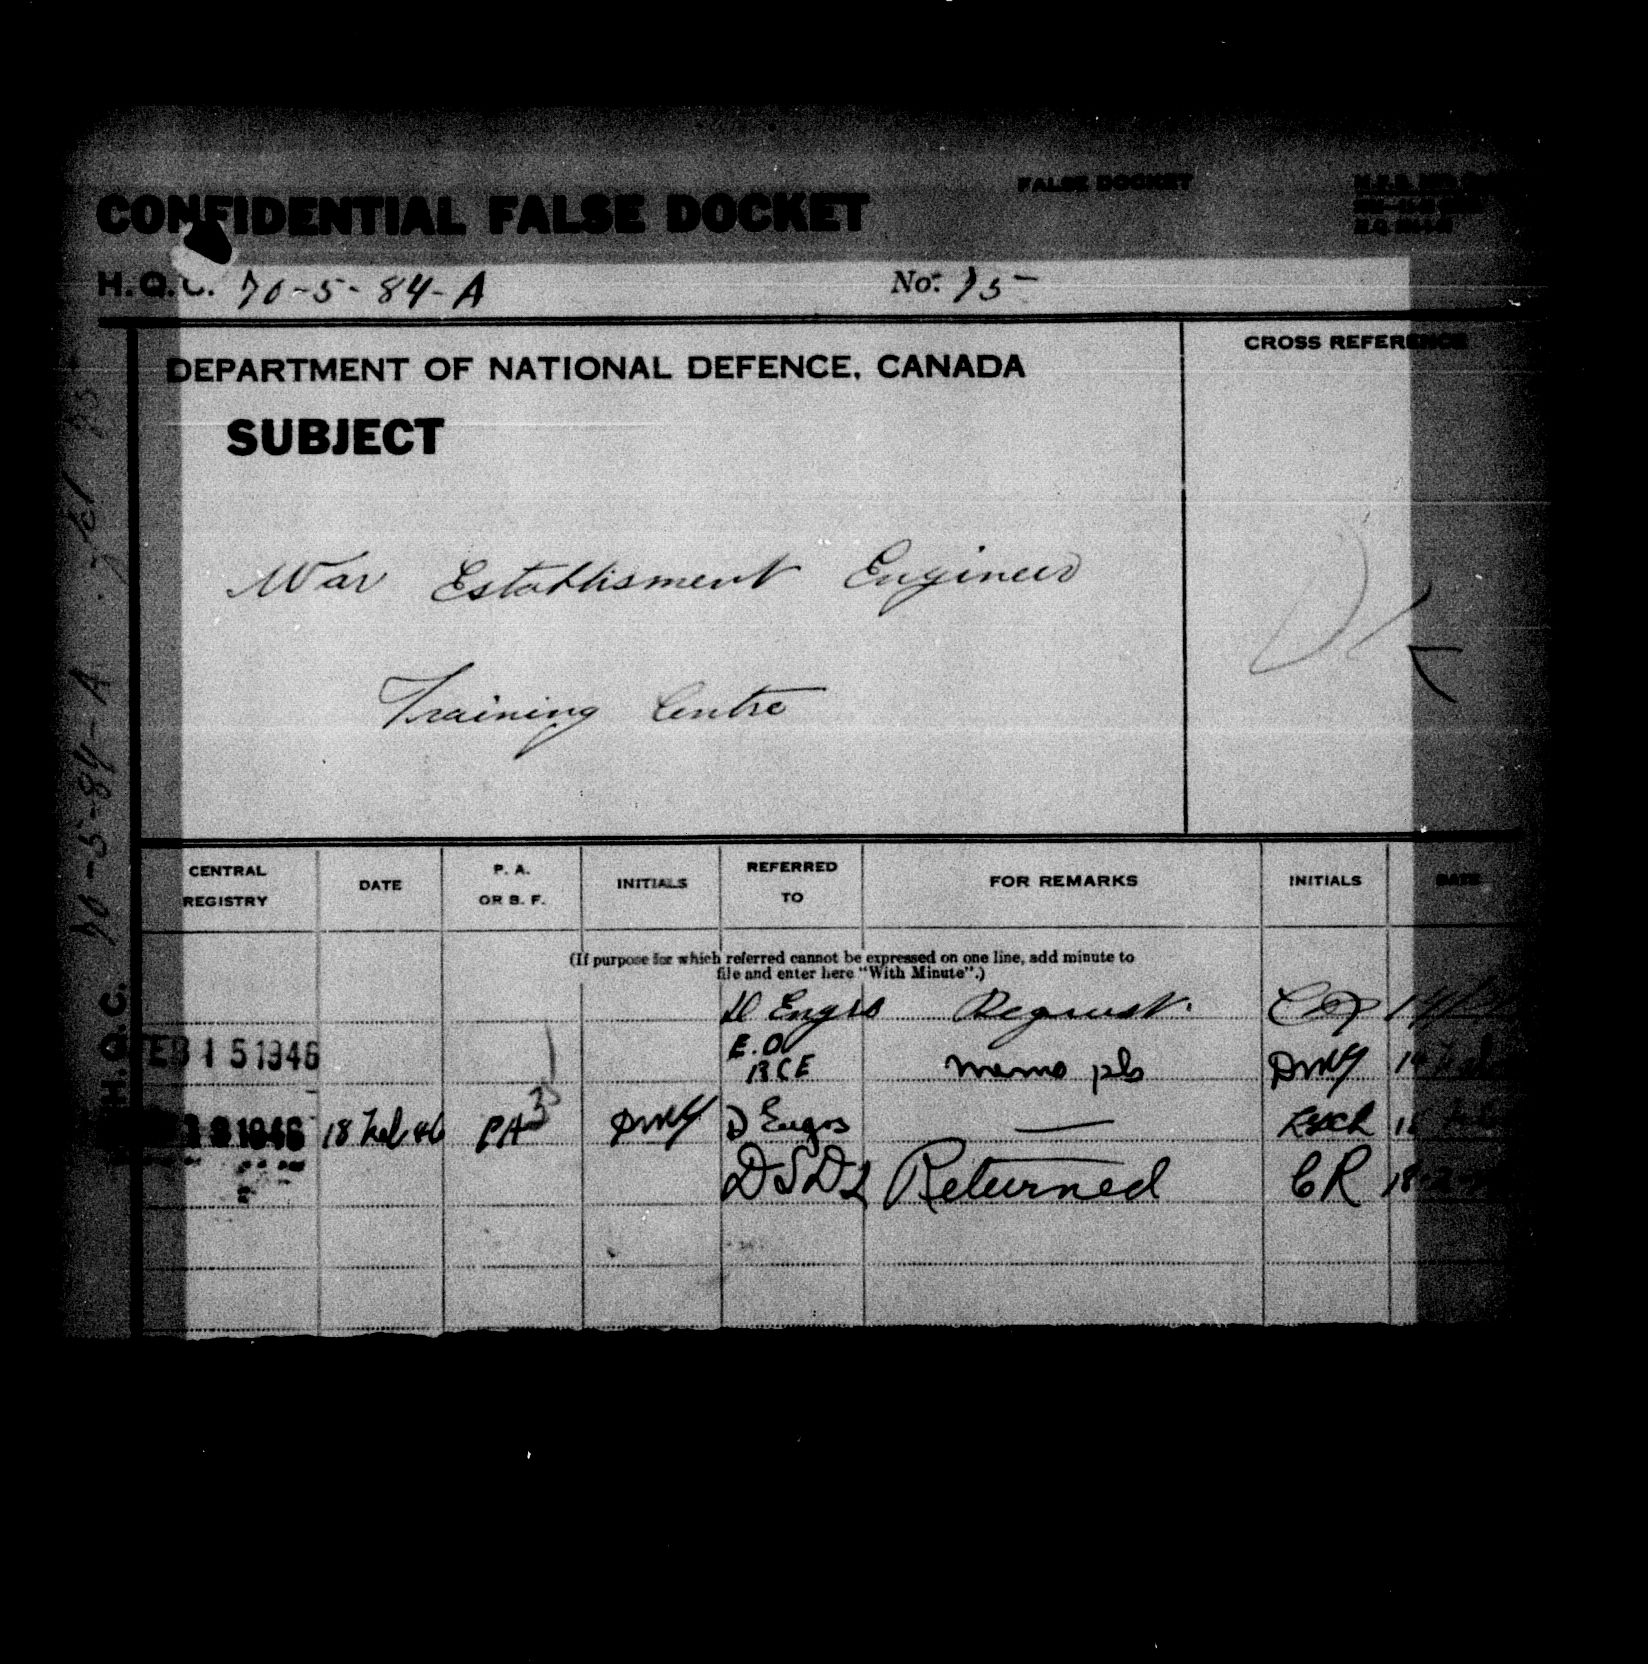 CONFIDENTIAL FALSE DOCKET
FALSE DOCKET
H.Q.C. 70-5-84-A
No. 75
DEPARTMENT OF NATIONAL DEFENCE, CANADA
CROSS REFERENCE
SUBJECT
War Establisment Engineer
Training Centre
H.Q.C. 70-5-84-A
CENTRAL REGISTRY
DATE
P. A. OR B. F.
INITIALS
REFERRED TO
FOR REMARKS
INITIALS
DATE
(If purpose for which referred cannot be expressed on one line, add minute to
file and enter here "With Minute".)
D Engrs Request.
FEB 15 1946 E.O RCE memo pls
1946 18 Feb 46 PA D Engrs —
Returned CR 18